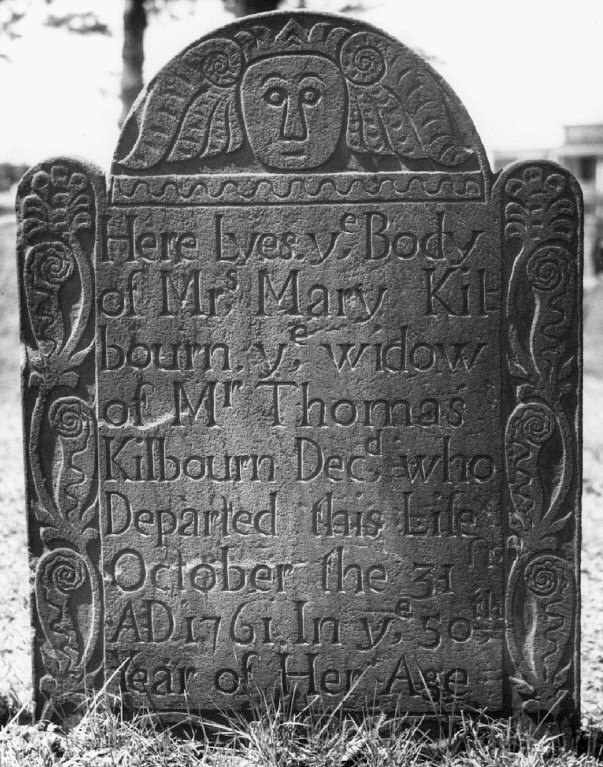 Here Lyes yᵉ Body
of Mrˢ Mary Kil-
bourn yᵉ widow
of Mʳ Thomas
Kilbourn Decᵈ who
Departed this Life
October the 31ˢᵗ
AD 1761 In yᵉ 50ᵗʰ
Year of Her Age